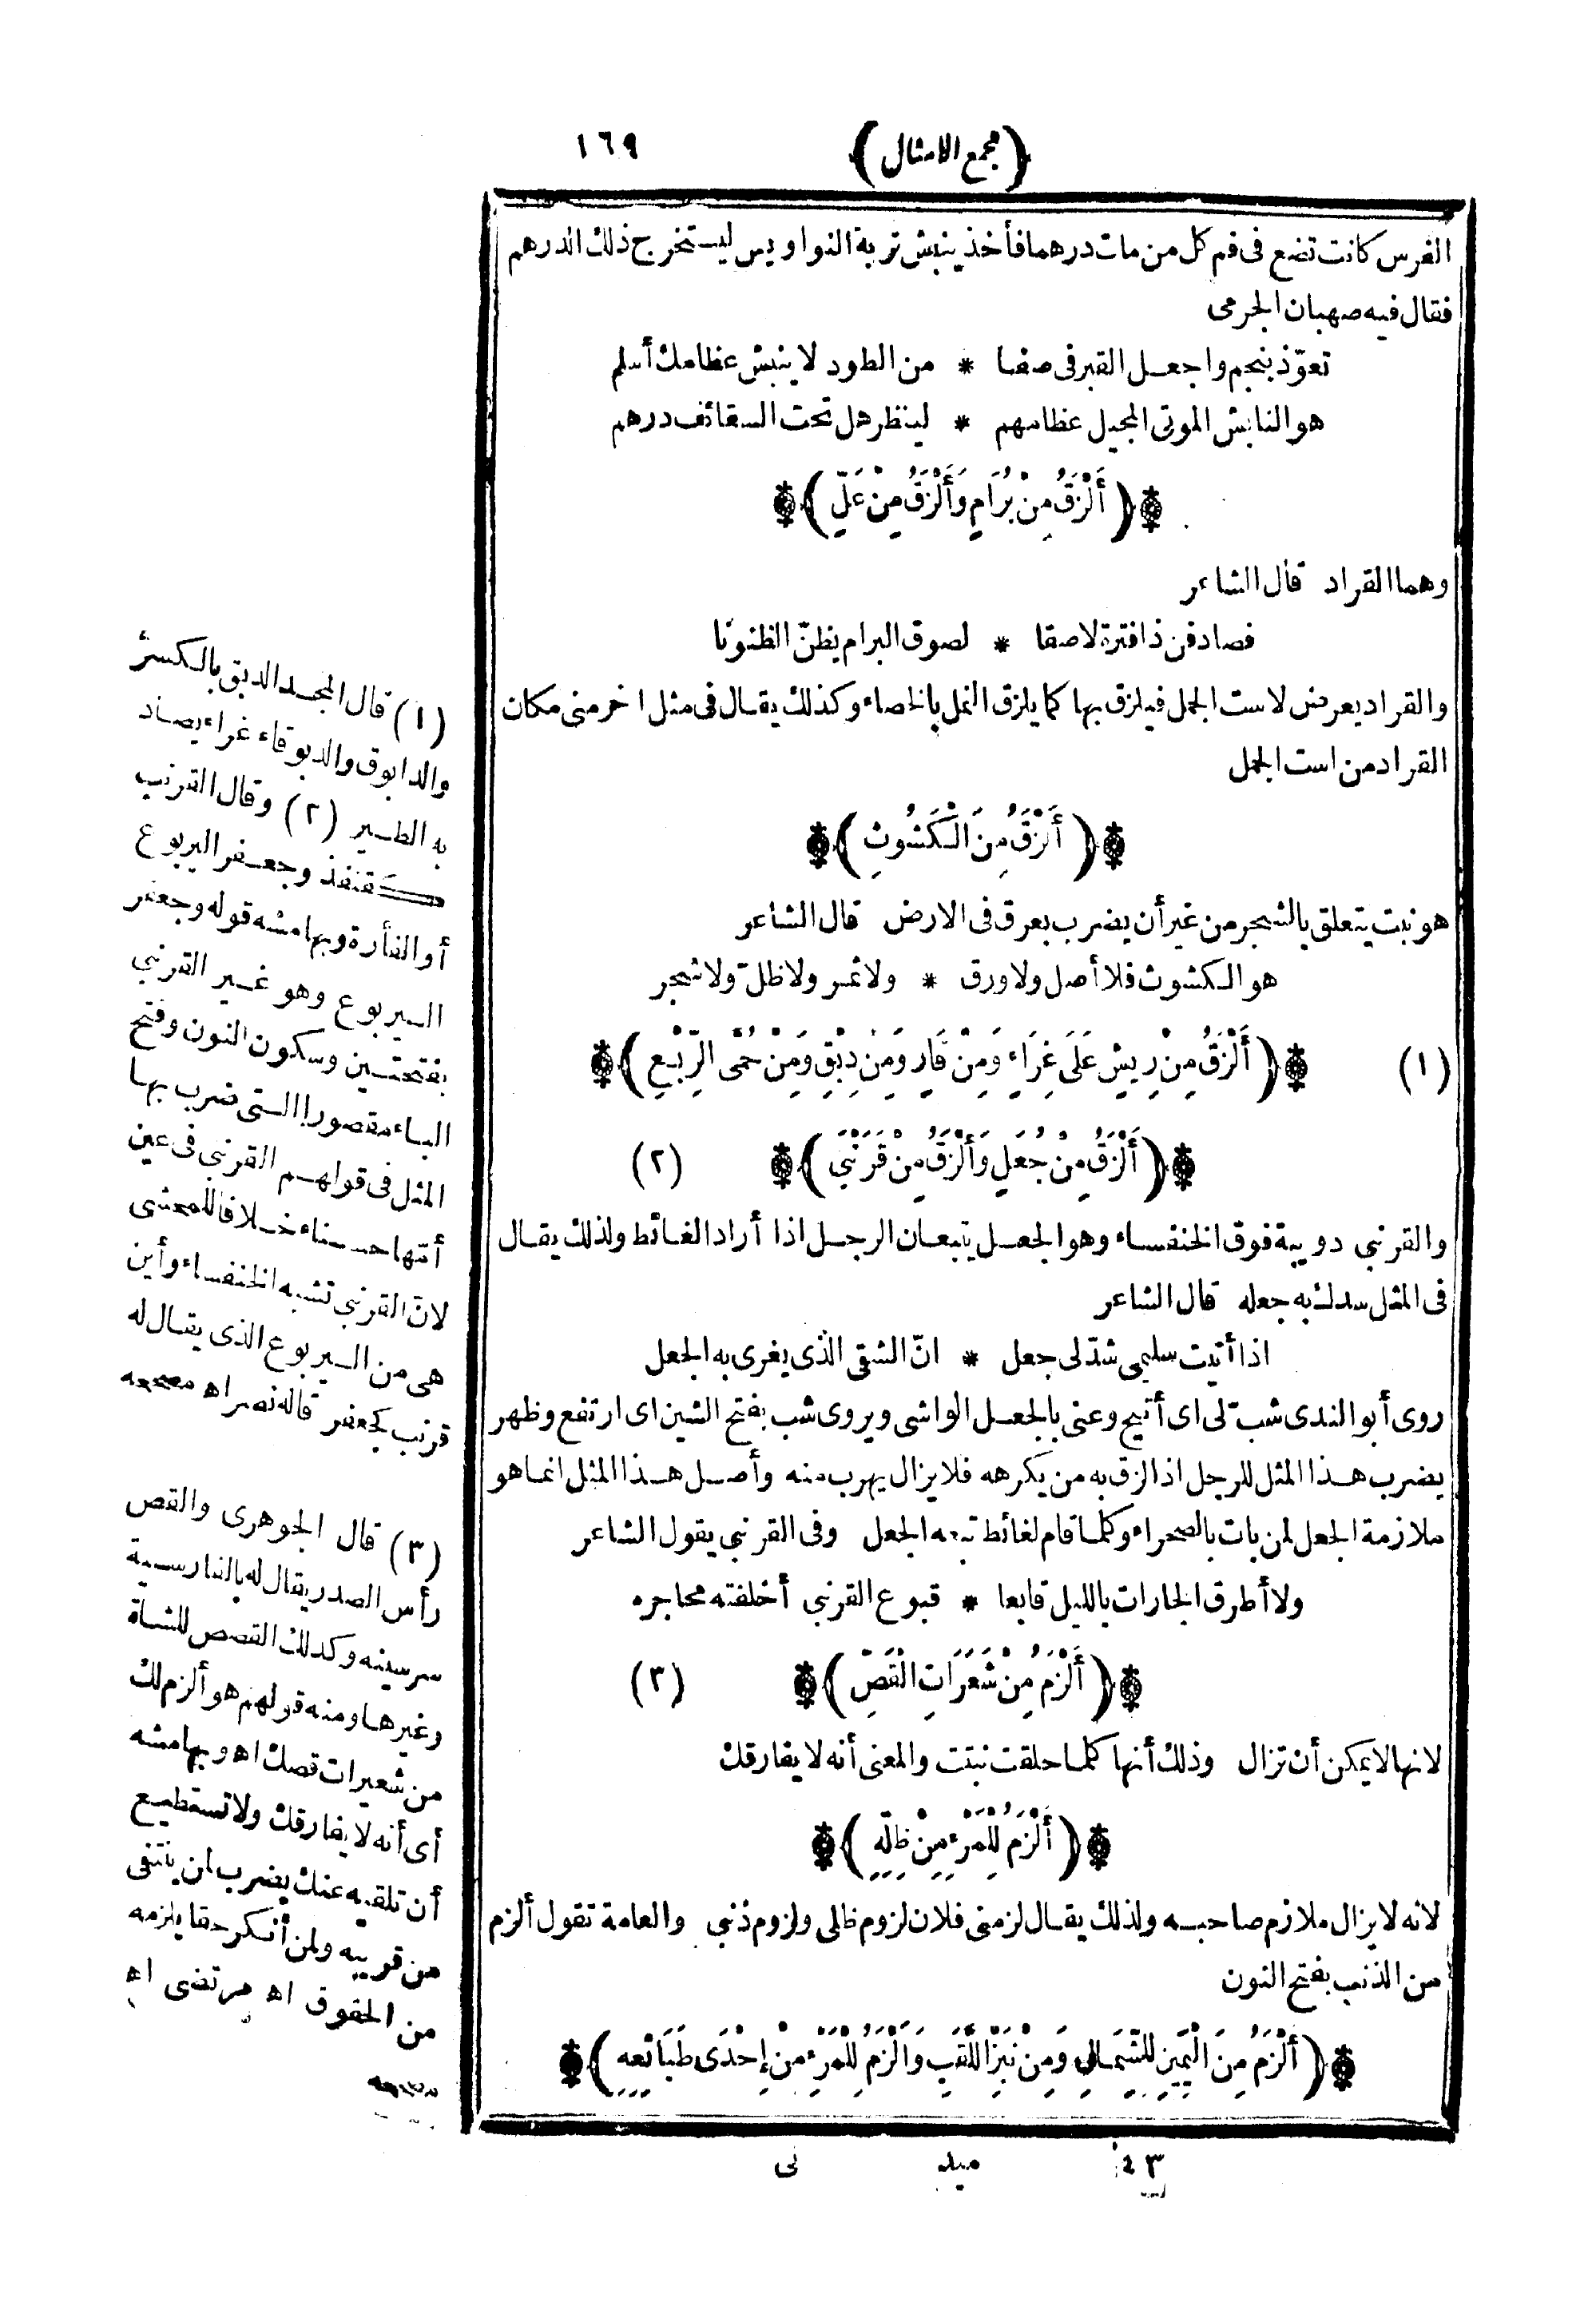 (مجمع الامثال) ١٦٩
الفرس كانت تضع فى فم كل من مات درهما فأخذ ينبش تربة النواويس ليستخرج ذلك الدرهم
فقال فيه صهبان الجرمى
تعوّذ بنجم واجعل القبر فى صفا * من الطود لا ينبش عظامك أسلم
هو النابش الموتى المجيل عظامهم * لينظر هل تحت السقائف درهم
(أَلْزَقُ مِنْ بُرَامٍ وَأَلْزَقُ مِنْ عَلٍّ)
وهما القراد قال الشاعر
فصادفن ذا فترة لاصقا * لصوق البرام يظنّ الظنونا
والقراد يعرض لاست الجمل فيلزق بها كما يلزق النمل بالخصاء وكذلك يقال فى مثل اخر منى مكان
القراد من است الجمل
(أَلْزَقُ مِنَ الْكَشُوثِ)
هو نبت يتعلق بالشجر من غير أن يضرب بعرق فى الارض قال الشاعر
هو الكشوث فلا أصل ولا ورق * ولا ثمر ولا ظلّ ولا شجر
(١) (أَلْزَقُ مِنْ رِيشٍ عَلَى غِرَاءٍ وَمِنْ قَارٍ وَمِنْ دِبْقٍ وَمِنْ حُمَّى الرِّبْعِ)
(أَلْزَقُ مِنْ جُعَلٍ وَأَلْزَقُ مِنْ قَرَنْبَى) (٢)
والقرنبى دويبة فوق الخنفساء وهو الجعل يتبعان الرجل اذا أراد الغائط ولذلك يقال
فى المثل سدك به جعله قال الشاعر
اذا أتيت سليمى شدّ لى جعل * انّ الشقى الذى يغرى به الجعل
روى أبو الندى شبّ لى اى أتيح وعنى بالجعل الواشى ويروى شب بفتح الشين اى ارتفع وظهر
يضرب هذا المثل للرجل اذا لزق به من يكرهه فلا يزال يهرب منه وأصل هذا المثل انما هو
ملازمة الجعل لمن بات بالصحراء وكلما قام لغائط تبعه الجعل وفى القرنبى يقول الشاعر
ولا أطرق الجارات بالليل قابعا * قبوع القرنبى أخلفته محاجره
(أَلْزَمُ مِنْ شَعَرَاتِ الْقَصِّ) (٣)
لانها لا يمكن أن تزال وذلك أنها كلما حلقت نبتت والمعنى أنه لا يفارقك
(أَلْزَمُ لِلْمَرْءِ مِنْ ظِلِّهِ)
لانه لا يزال ملازم صاحبه ولذلك يقال لزمنى فلان لزوم ظلى ولزوم ذنبى والعامة تقول ألزم
من الذنب بفتح النون
(أَلْزَمُ مِنَ الْيَمِينِ لِلشِّمَالِ وَمِنْ نَبْزِ اللَّقَبِ وَأَلْزَمُ لِلْمَرْءِ مِنْ إِحْدَى طَبَائِعِهِ)
ميد نى
(١) قال المجد الدبق بالكسر
والدابوق والدبوقاء غراء يصاد
به الطير (٢) وقال القرنب
كقنفذ وجعفر اليربوع
أو الفأرة وبهامشه قوله وجعفر
اليربوع وهو غير القرنبى
بفتحتين وسكون النون وفتح
الباء مقصورا التى ضرب بها
المثل فى قولهم القرنبى فى عين
أمّها حسناء خلافا للمحشى
لانّ القرنبى تشبه الخنفساء وأين
هى من اليربوع الذى يقال له
قرنب كجعفر قاله نصر اه مصححه
(٣) قال الجوهرى والقص
رأس الصدر يقال له بالفارسية
سرسينه وكذلك القصص للشاة
وغيرها ومنه قولهم هو ألزم لك
من شعيرات قصك اه وبهامشه
أى أنه لا يفارقك ولا تستطيع
أن تلقيه عنك يضرب لمن ينتفى
من قريبه ولمن أنكر حقا يلزمه
من الحقوق اه مرتضى اه